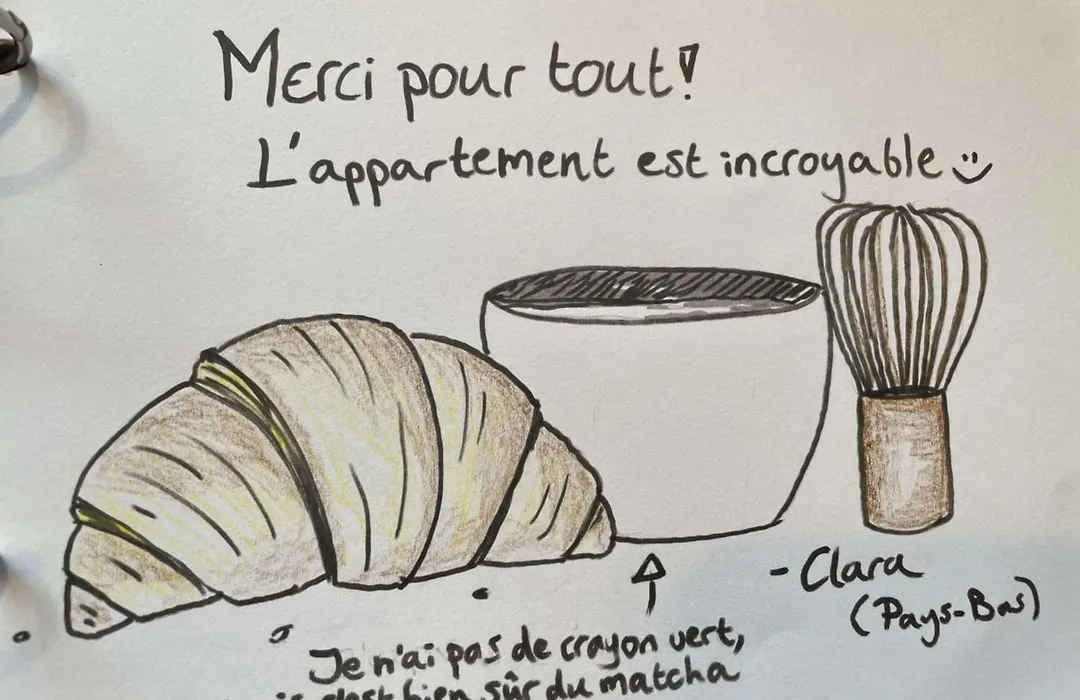 Merci pour tout!
L'appartement est incroyable :)
- Clara
(Pays-Bas)
Je n'ai pas de crayon vert,
c'est bien sûr du matcha